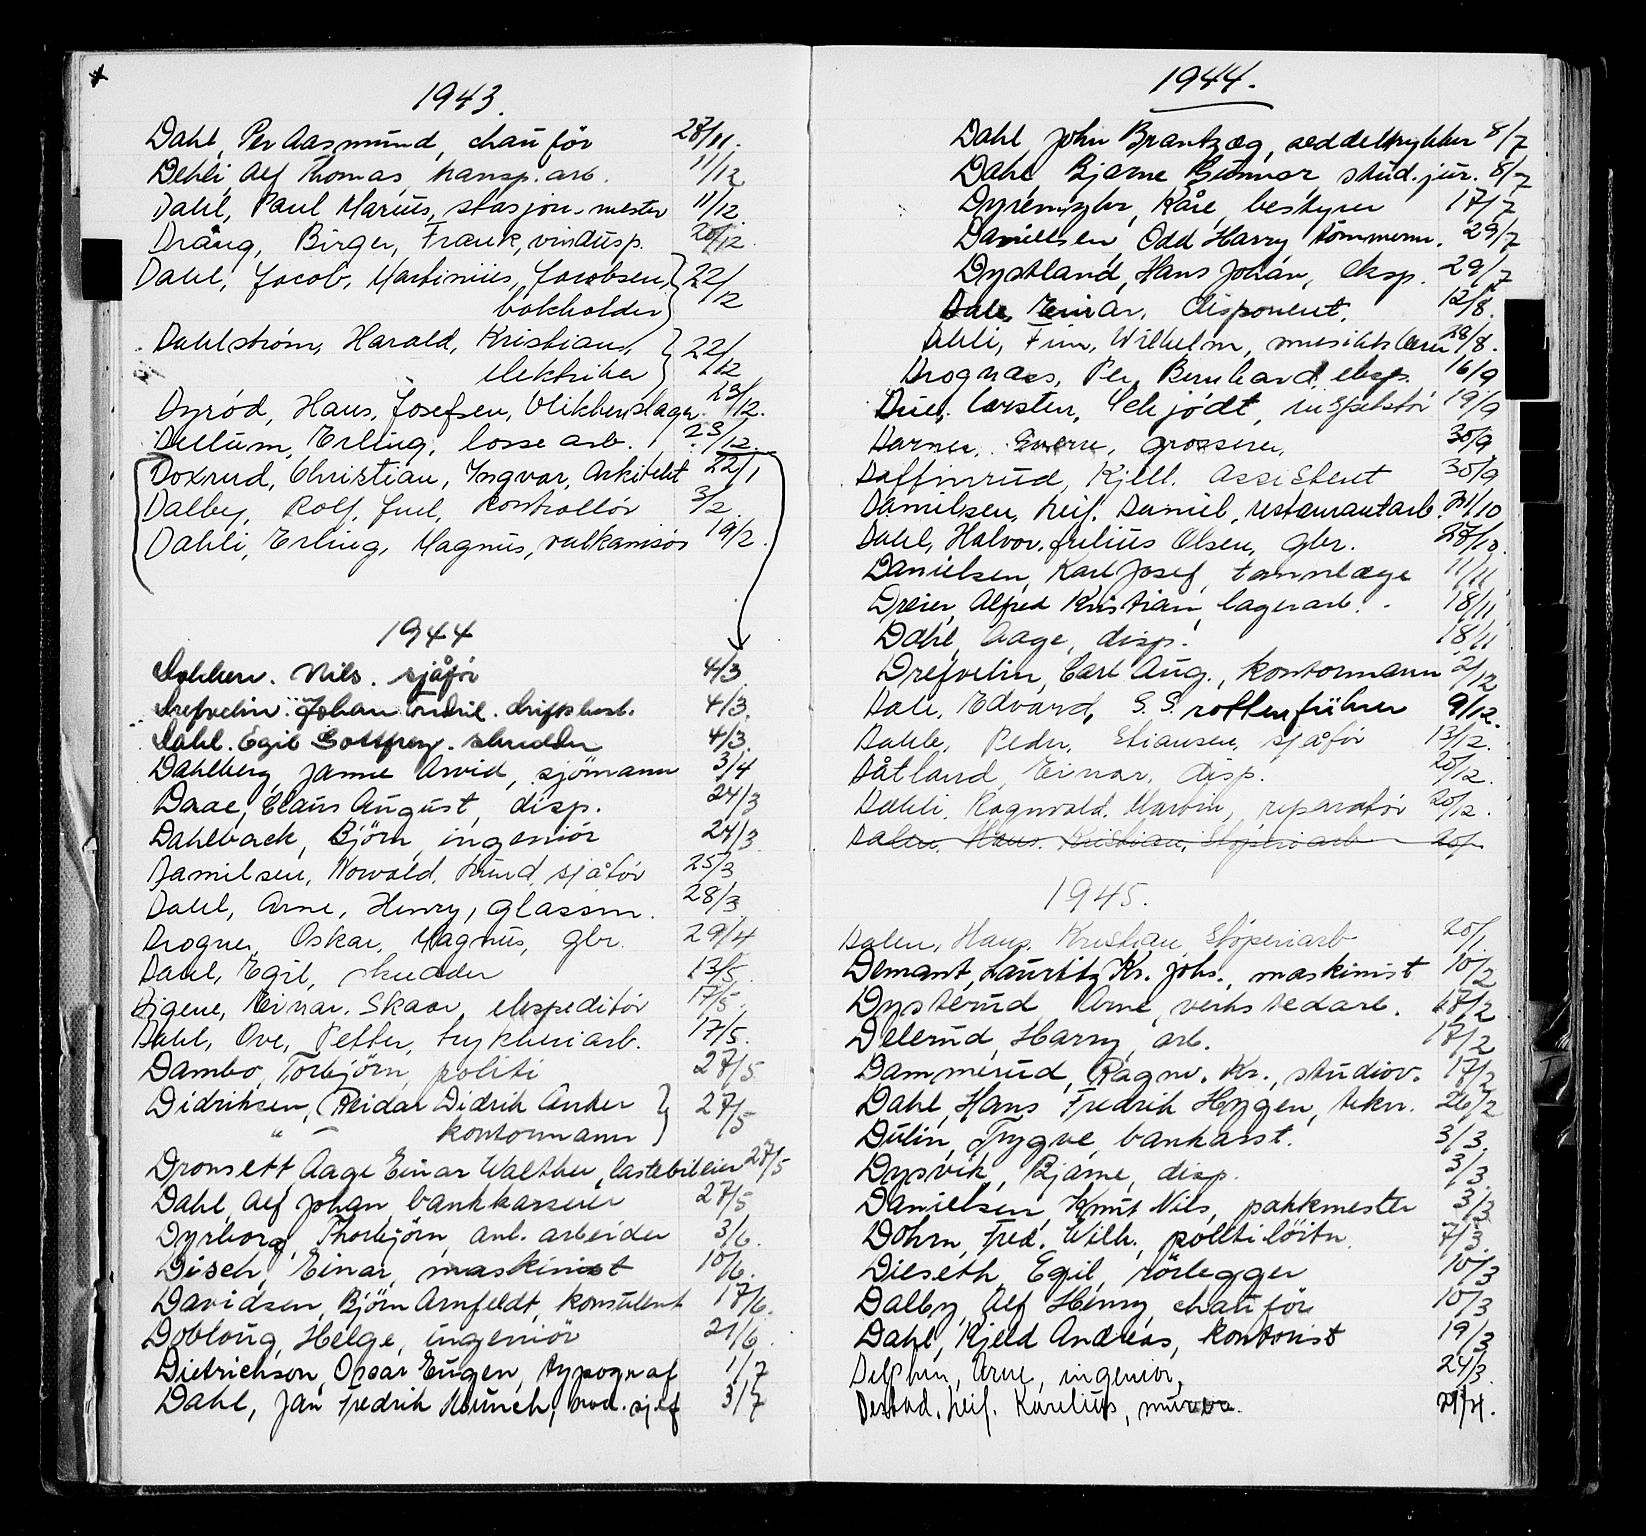 1943.
Dahl, Per Aasmund, chauför 28/11.
Dehli, Alf Thomas, transp. arb. 11/12
Dahl, Paul Marius, stasjonsmester 11/12.
Drång, Birger, Frank, vindusp. 20/12.
Dahl, Jacob, Martinius, Jacobsen, 22/12
bokholder
Dahlstrøm, Harald, Kristian, 22/12
elektriker
Dyrød, Hans, Josefsen, blikkenslager. 23/12.
Dellum, Erling, losse arb. 23/12.
Doxrud, Christian, Ingvar, Arkitekt 22/1
Dalby, Rolf, Juel, kontrollør 3/2.
Dahli, Erling, Magnus, vulkanisør 19/2.
1944
Nils. sjåför 4/3.
Drefvelin. Johan 4/3.
Dahl. Egil Gottfrey. skredder 4/3.
Dahlberg, Janne Arvid, sjömann 3/4
Daae, Claus August, disp. 24/3
Dahlback, Björn, ingeniör 24/3
Danilsen, Norvald, Lund, sjåför 25/3
Dahl, Arne, Henry, glassm. 28/3.
Drogner, Oskar, Magnus, gbr. 29/4
Dahl, Egil, skredder 13/5.
Digene, Einar. Skaar, ekspeditör 17/5.
Dahl, Ove, Petter, trykkeriarb. 17/5.
Dambo, Torbjörn, politi 27/5
Didriksen, Reidar Didrik Anker 27/5
" — kontormann
Dronsett, Aage Einar Walther, lastebileier 27/5
Dahl, Alf Johan, bankkasserer 27/5
Dyrborg, Thorbjörn, anl. arbeider 3/6.
Disch, Einar, maskinist 10/6.
Davidsen, Björn Arnfeldt, konsulent 17/6.
Dobloug, Helge, ingeniör 21/6.
Dietrichson, Oscar Eugen, typograf 1/7
Dahl, Jan Fredrik Munch, avd. sjef 3/7
1944.
Dahl, John Brantzæg, seddeltrykker 8/7
Dahl, Bjarne Gunnar, stud. jur. 8/7
Kåre, bestyrer 17/7
Daniellsen, Odd Harry tömmerm. 29/7
Dystland, Hans Johan, eksp. 29/7
Dale, Einar, disponent, 12/8.
Dahli, Finn, Wilhelm, musikklærer 28/8.
Drognæs, Per, Bernhard, eksp. 16/9
Due, Carsten, Schjödt, inspektör 19/9
Darner, Sverre, grosserer, 30/9
Daffinrud, Kjell. Assistent 30/9
Danielsen, Leif. Daniel, restaurantarb. 21/10
Dahl, Halvor. Julius Olsen, gbr. 28/10.
Danielsen, Karl Josef, tannlæge 11/11
Dreier, Alfred Kristian, lagerarb. 18/11
Dahl, Aage, disp. 18/11
Drefvelin, Carl Aug., kontormann 2/12
Dale, Edvard, S.S. rottenführer 9/12.
Dahle, Peder, Eliassen, sjåför 13/12.
Dåtland, Einar, disp. 20/12.
Dæhli, Ragnvald. Martin, reparatör 20/12.
Dalen, Hans. Kristian, Støperiarb 20/
1945.
Dalen, Hans. Kristian, Støperiarb 20/1.
Demant, Lauritz Kr. Johs., maskinist 10/2
Dysterud, Arne, verkstedarb. 17/2
Delerud, Harry, arb. 17/2
Dammerud, Ragnv. Kr., studiov. 17/2
Dahl, Hans Fredrik Hygen, tekn. 26/2
Dulin, Trygve, bankasst. 3/3.
Dysvik, Bjarne, disp. 3/3.
Danielsen, Knut Nils, pakkmester 3/3
Dohrn, Fred. Wilh., politilöitn. 7/3.
Dieseth, Egil, rörlegger 10/3
Dalby, Alf Henry, chauför 10/3
Dahl, Kjeld Andreas, kontorist 19/3
Delphin, Arne, ingeniör, 24/3.
Destad. Leif. Karelius, murer. 21/4.